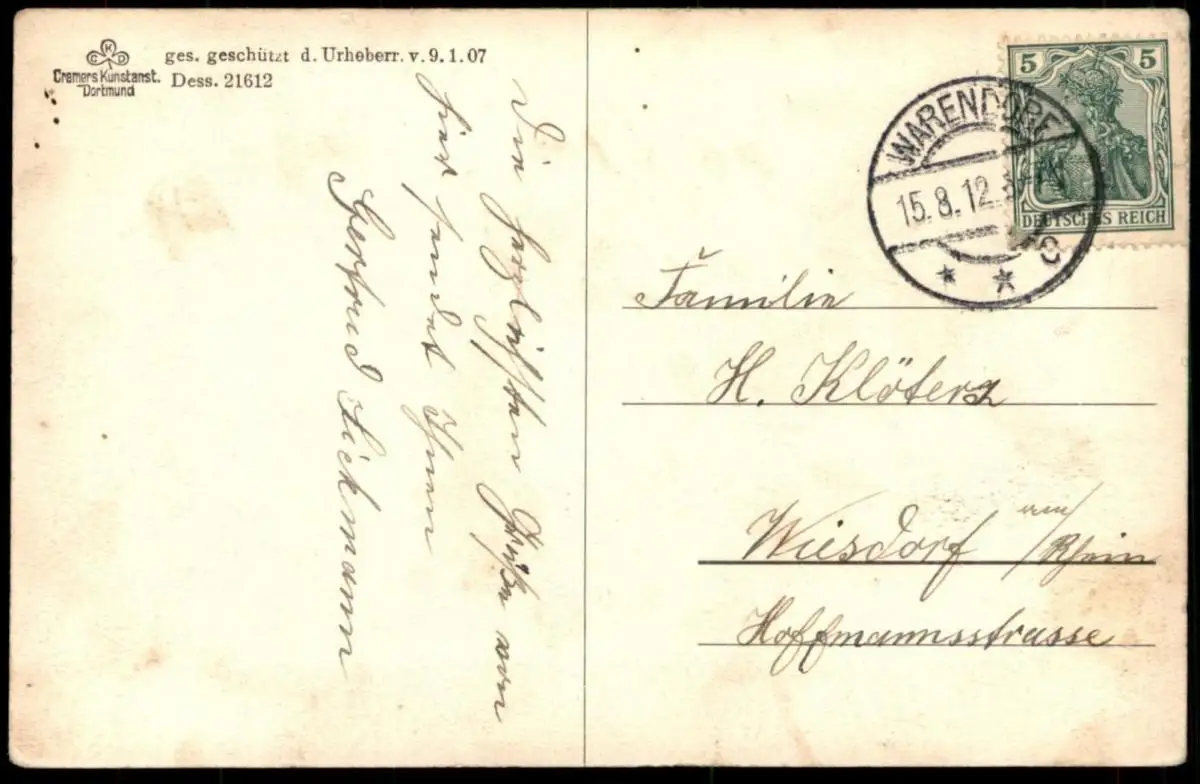 CKD
Cramers Kunstanst.
Dortmund
ges. geschützt d. Urheberr. v. 9.1.07
Dess. 21612
Die herzlichsten Grüße von
hier sendet Ihnen
Gertrud Sickmann
5 5
DEUTSCHES REICH
WARENDORF
15.8.12.
* * c
Familie
H. Klöters
Wiesdorf am/Rhein
Hoffmannsstrasse